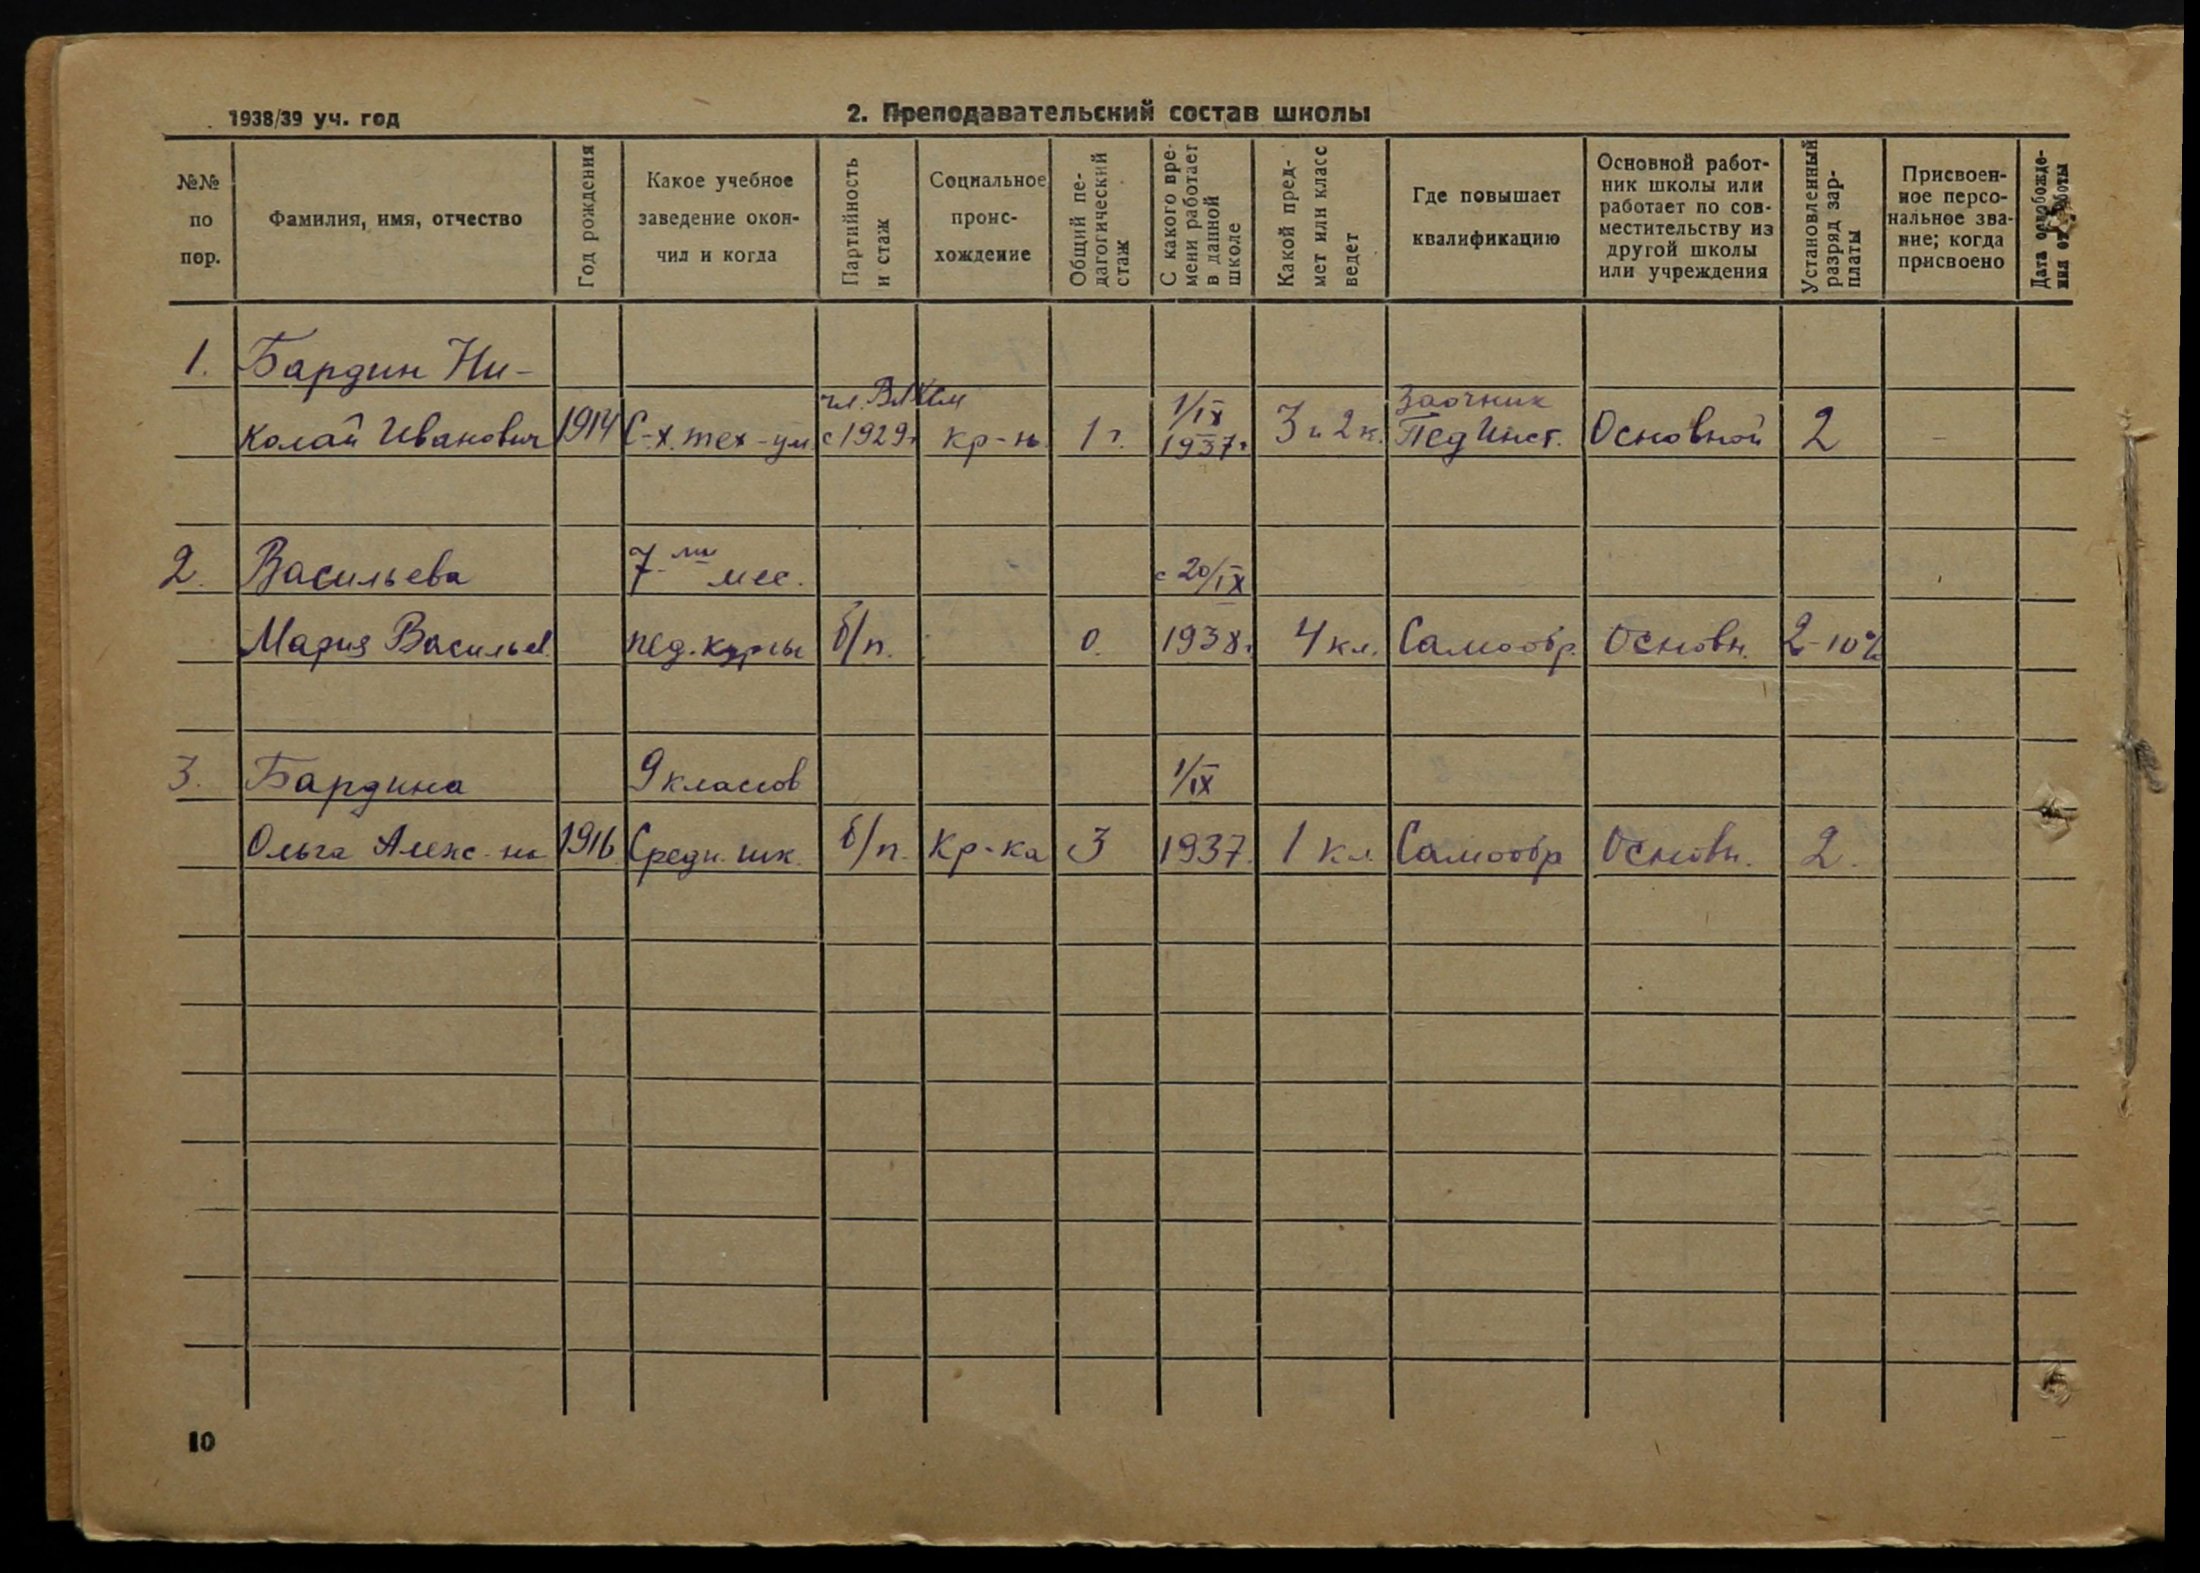 1938/39 уч. год
2. Преподавательский состав школы
№№ по пор.
Фамилия, имя, отчество
Год рождения
Какое учебное заведение окончил и когда
Партийность и стаж
Социальное происхождение
Общий педагогический стаж
С какого времени работает в данной школе
Какой предмет или класс ведет
Где повышает квалификацию
Основной работник школы или работает по совместительству из другой школы или учреждения
Установленный разряд зарплаты
Присвоенное персональное звание; когда присвоено
Дата освобождения от работы
1. Бардин Ни-
чл. ВЛКСМ 1/IX Заочник
колай Иванович 1914 С-х. тех-ум с 1929г кр-н. 1 г. 1937г 3 и 2 к. Пед Инст. Основной 2 -
2. Васильева 7-ми мес. с 20/IX
Мария Васильев. пед. курсы б/п. 0. 1938г 4 кл. Самообр. Основн. 2-10%
3. Бардина 9 классов 1/IX
Ольга Алекс-на 1916 Средн. шк. б/п. Кр-ка 3 1937. 1 кл. Самообр Основн. 2.
10